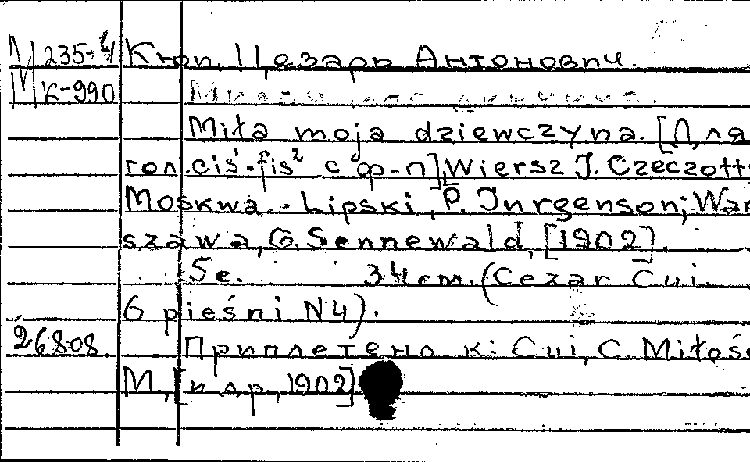 М 235-4 Кюи, Цезарь Антонович.
М К-990
Miła moja dziewczyna. [Для
гол. cis¹-fis² с ф-п] Wiersz J. Czeczott
Moskwa - Lipski, P. Jurgenson; War
szawa, G. Sennewald, [1902].
5 с. 34 см. (Cezar Cui.
6 pieśni N4).
26808 Приплетено к: Cui, C. Miłoś
M, [и др, 1902]